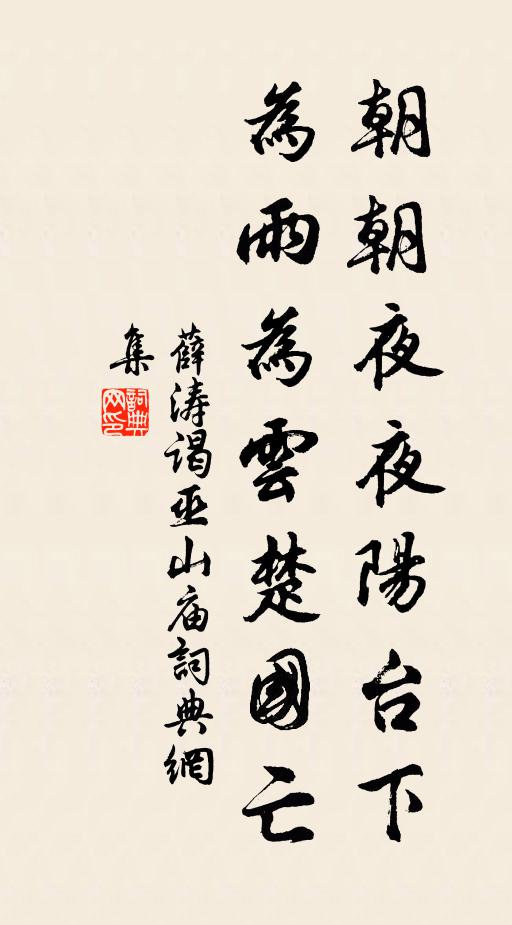 朝朝夜夜陽台下
為雨為雲楚國亡
薛涛謁巫山庙詞典網
集
詞典
网印